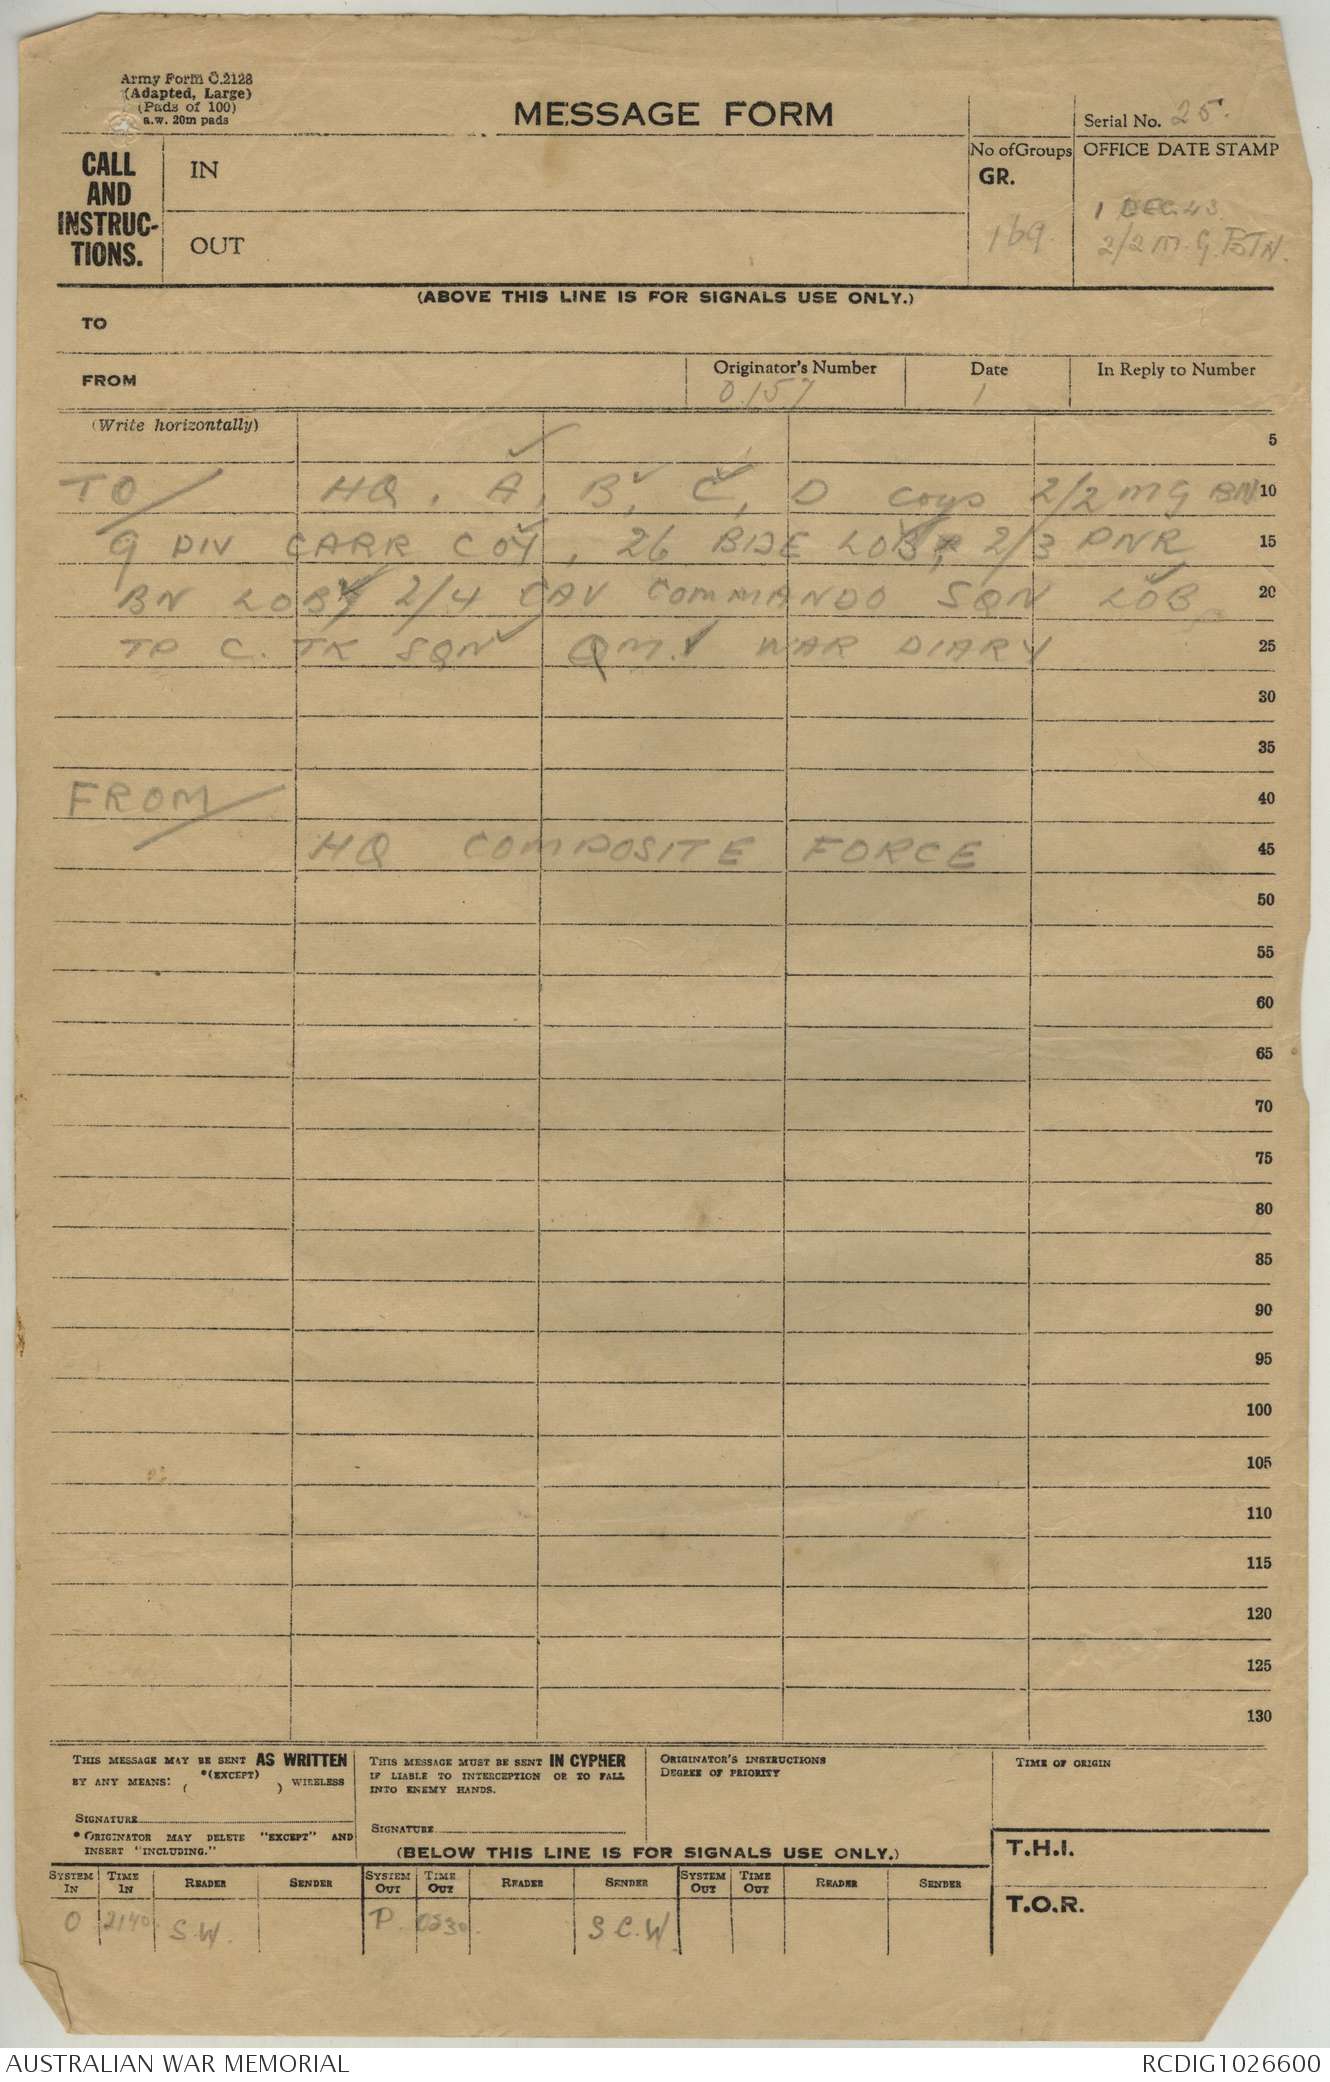 Army Form C.2128
(Adapted, Large)
(Pads of 100)
a.w. 20m pads
MESSAGE FORM
Serial No. 25.
CALL AND INSTRUC-TIONS.
IN
OUT
No of Groups
GR.
169.
OFFICE DATE STAMP
1 DEC 43
2/2 M.G. BTN.
(ABOVE THIS LINE IS FOR SIGNALS USE ONLY.)
TO
FROM
Originator's Number
O.157
Date
1
In Reply to Number
(Write horizontally)
5
TO/ HQ, A, B, C, D Coys 2/2 MG BN 10
9 DIV CARR COY, 26 BDE LOB, 2/3 PNR 15
BN LOB, 2/4 CAV COMMANDO SQN LOB, 20
TP C. TK SQN QM. WAR DIARY 25
30
35
FROM/ 40
HQ COMPOSITE FORCE 45
50
55
60
65
70
75
80
85
90
95
100
105
110
115
120
125
130
THIS MESSAGE MAY BE SENT AS WRITTEN
BY ANY MEANS: *(EXCEPT) ( ) WIRELESS
SIGNATURE
* ORIGINATOR MAY DELETE "EXCEPT" AND
INSERT "INCLUDING."
THIS MESSAGE MUST BE SENT IN CYPHER
IF LIABLE TO INTERCEPTION OR TO FALL
INTO ENEMY HANDS.
SIGNATURE
ORIGINATOR'S INSTRUCTIONS
DEGREE OF PRIORITY
TIME OF ORIGIN
(BELOW THIS LINE IS FOR SIGNALS USE ONLY.)
T.H.I.
T.O.R.
SYSTEM IN TIME IN READER SENDER SYSTEM OUT TIME OUT READER SENDER SYSTEM OUT TIME OUT READER SENDER
O 2140 S.W. P. 0530. S C.W
AUSTRALIAN WAR MEMORIAL
RCDIG1026600